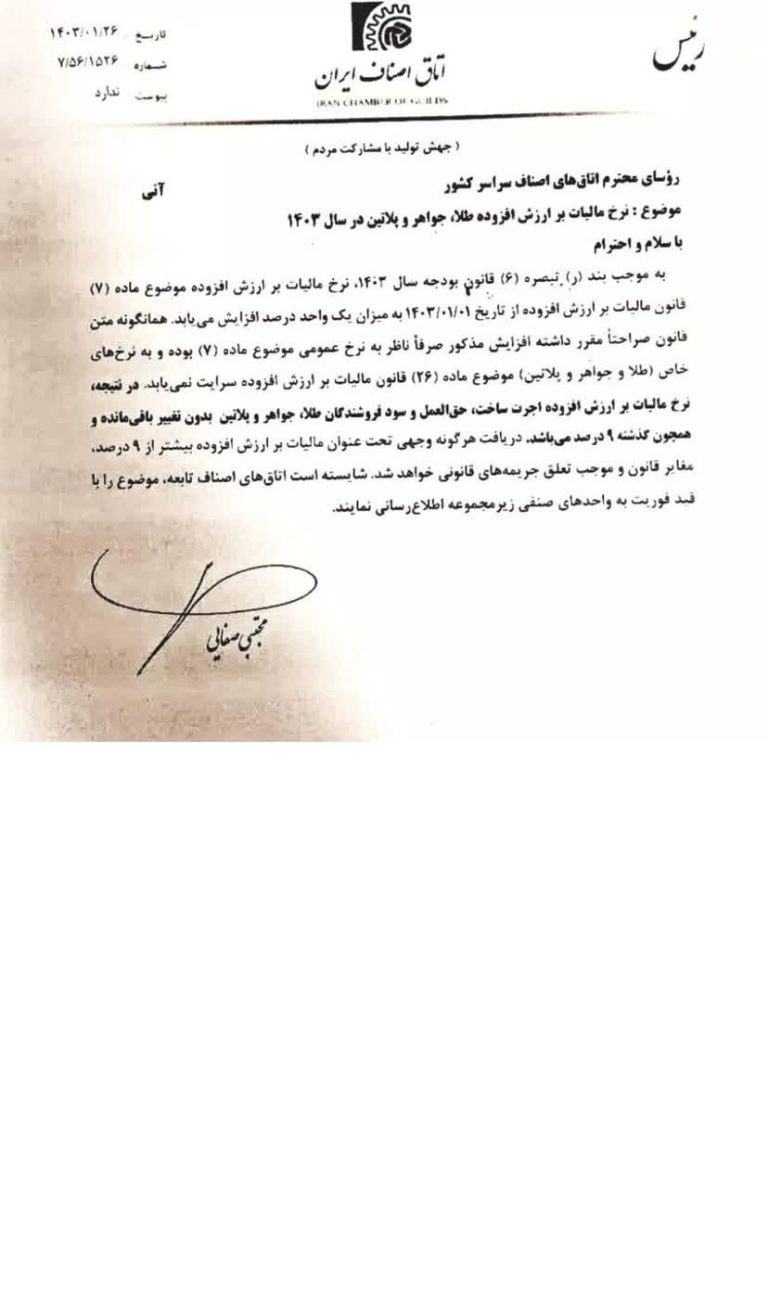 رئیس
اتاق اصناف ایران
IRAN CHAMBER OF GUILDS
تاریخ ۱۴۰۳/۰۱/۲۶
شماره ۷/۵۶/۱۵۲۶
پیوست ندارد
(جهش تولید با مشارکت مردم)
رؤسای محترم اتاق‌های اصناف سراسر کشور آنی
موضوع : نرخ مالیات بر ارزش افزوده طلا، جواهر و پلاتین در سال ۱۴۰۳
با سلام و احترام
به موجب بند (ر) تبصره (۶) قانون بودجه سال ۱۴۰۳، نرخ مالیات بر ارزش افزوده موضوع ماده (۷)
قانون مالیات بر ارزش افزوده از تاریخ ۱۴۰۳/۰۱/۰۱ به میزان یک واحد درصد افزایش می‌یابد. همانگونه متن
قانون صراحتاً مقرر داشته افزایش مذکور صرفاً ناظر به نرخ عمومی موضوع ماده (۷) بوده و به نرخ‌های
خاص (طلا و جواهر و پلاتین) موضوع ماده (۲۶) قانون مالیات بر ارزش افزوده سرایت نمی‌یابد. در نتیجه،
نرخ مالیات بر ارزش افزوده اجرت ساخت، حق‌العمل و سود فروشندگان طلا، جواهر و پلاتین بدون تغییر باقی‌مانده و
همچون گذشته ۹ درصد می‌باشد. دریافت هرگونه وجهی تحت عنوان مالیات بر ارزش افزوده بیشتر از ۹ درصد،
مغایر قانون و موجب تعلق جریمه‌های قانونی خواهد شد. شایسته است اتاق‌های اصناف تابعه، موضوع را با
قید فوریت به واحدهای صنفی زیرمجموعه اطلاع‌رسانی نمایند.
مجتبی صفایی